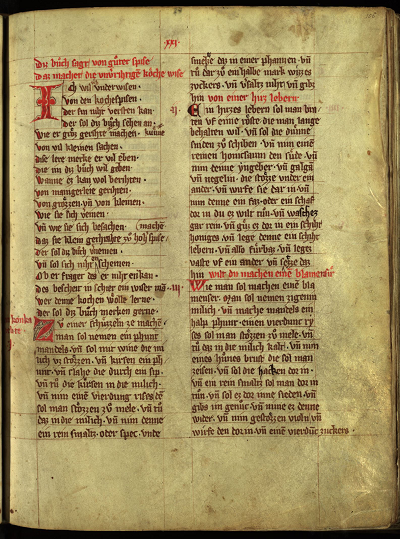 .xxi.
Diz bůch sagt von gůter spise
daz machet die unverihtigē köche wise
Ich wil uch underwisen.
von den kochespisen.
der sin niht versten kan.
der sol diz bůch sehen an.
wie er groz gerihte machen. kunne
von vil kleinen sachen.
dise lere merke er vil eben.
die im diz bůch wil geben
wanne ez kan wol berihten.
von mangerleie gerihten.
von grozzen. vn̄ von kleinen.
wie sie sich vereinen.
vn̄ wie sie sich besachen. machē
daz sie klein gerihte zů hoh spise
der sol diz bůch vernemen.
vn̄ sol sich niht enschemen.
ob er fraget des er niht enkan.
des bescheit in schier ein wiser man.
wer denne kochen wolle lerne.
der sol diz bůch merken gerne.
Zu einer schüzzeln ze machē
man sol nemen ein phunt
mandels. vn̄ sol mit wine die mi
lich vz stozzen. vn̄ kirsen ein ph
unt. vn̄ slahe die durch ein sip
vn̄ tů die kirsen in die milich.
vn̄ nim einē vierdung rises dē
sol man stozzen zů mele. vn̄ tů
daz in die milich. vn̄ nim denne
ein rein smaltz. oder spec. vnde
smeltze daz in einer phannen. vn̄
tů dar zů ein halbe mark wizzes
zuckers. vn̄ vsaltz niht vn̄ gibz
hin von einer hirz lebern.
Ein hirzes lebern sol man bra
ten vf eime röste. die man lange
behalten wil. vn̄ sol die dünne
sniden zu schiben. vn̄ nim einē
reinen honicsaum den süde. vn̄
nim denne yngeber. vn̄ galgā
vn̄ negelin. die stözze under ein
ander. vn̄ wirfe sie dar in. vn̄
nim denne ein faz. oder ein schaf
daz in du ez wilt tůn. vn̄ waschez
gar rein. vn̄ güz ez do in ein schiht
honiges vn̄ lege denne ein schiht
lebern. vn̄ also fürbaz. vn̄ leges
vaste uf ein ander vn̄ setze daz
hin wilt du machen einē blamensir
Wie man sol machen eine bla
menser. man sol nemen zigenin
milich. vn̄ mache mandels ein
halp phunt. einen vierdunc ry
ses sol man stözzen zů mele. vn̄
tů daz in die milich kalt. vn̄ nim
eines hůnes brust die sol man
zeisen. vn̄ sol die hacken dor in.
vn̄ ein rein smaltz sol man dor in
tůn. vn̄ sol ez dor inne sieden. vn̄
gibs im genüc. vn̄ nime ez denne
wider. vn̄ nim gestozzen violn. vn̄
wirfe den dor in. vn̄ einē vierdūc zuckers.